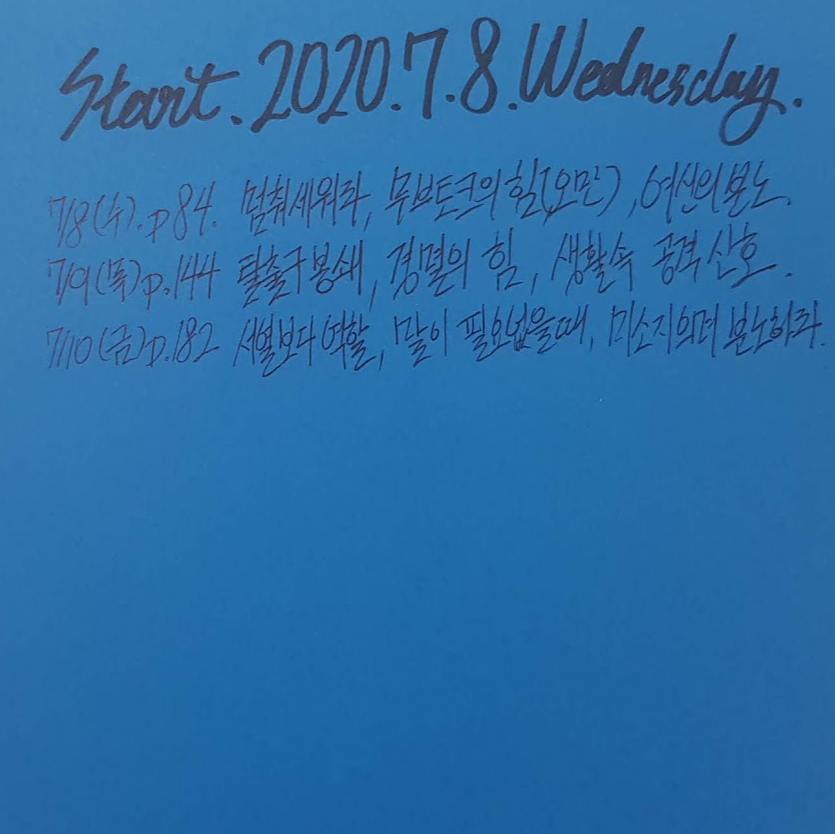 Start. 2020. 7. 8. Wednesday.
7/8(수). p84. 멈춰세워라, 무브토크의 힘(오만), 여신의 분노.
7/9(목)p.144 탈출구 봉쇄, 경멸의 힘, 생활속 공격 신호.
7/10(금)p.182 서열보다 역할, 말이 필요없을때, 미소지으며 분노하라.